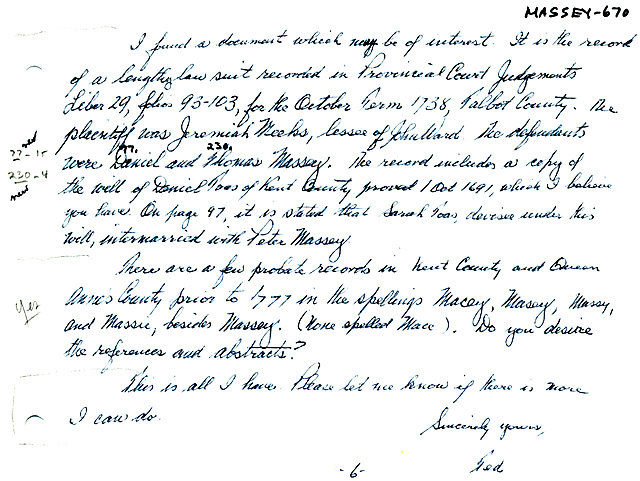 MASSEY-670
I found a document which may be of interest. It is the record
of a lengthy law suit recorded in Provincial Court Judgements
Liber 29, folios 93-103, for the October Term 1738, Talbot County. The
plaintiff was Jeremiah Meeks, lessee of Jno Ward. The defendants
77. 230.
were Daniel and Thomas Massey. The record includes a copy of
the will of Daniel Toas of Kent County, proved 1 Oct 1691, which I believe
you have. On page 97, it is stated that Sarah Toas, devisee under this
will, intermarried with Peter Massey
new
77-15
230-4
new
There are a few probate records in Kent County and Queen
Anne's County prior to 1777 in the spellings Macey, Masey, Massy,
and Massie, besides Massey. (None spelled Mace). Do you desire
the references and abstracts?
Yes
This is all I have. Please let me know if there is more
I can do.
Sincerely yours,
Ted
-6-